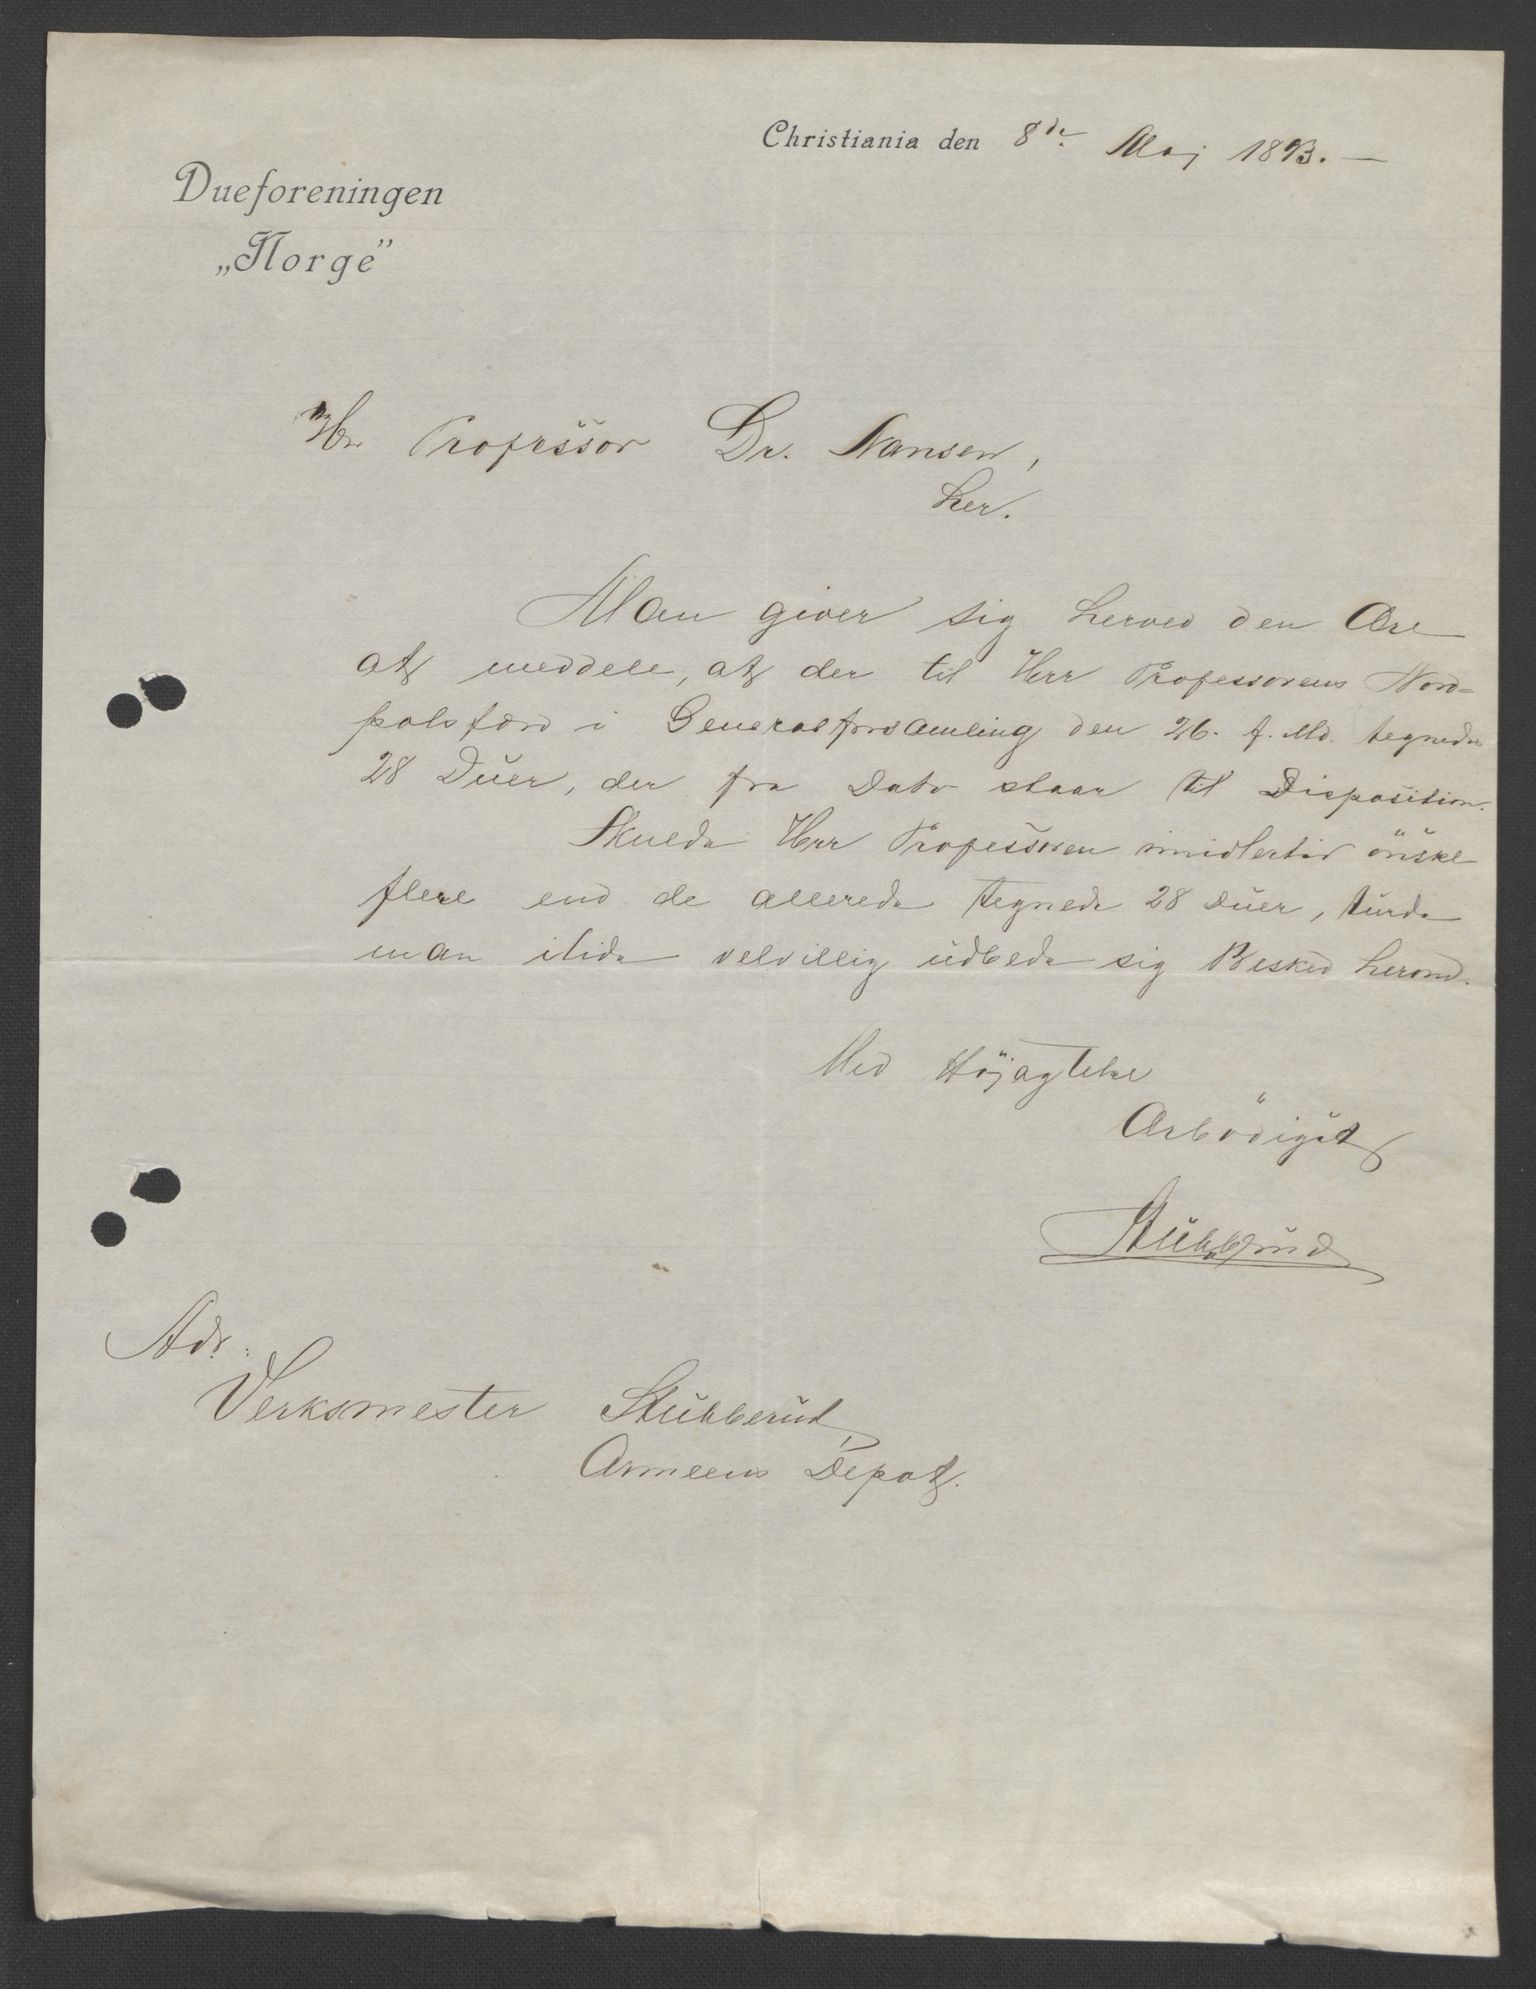 Christiania den 8de Maj 1893. —
Dueforeningen
„Norge”
Hr. Professor Dr. Nansen,
her.
Man giver sig herved den Ære
at meddele, at der til Herr Professorens Nord=
polsfærd i Generalforsamling den 26. f. Md. tegnedes
28 Duer, der fra Dato staar til Disposition.
Skulde Herr Professoren imidlertid önske
flere end de allerede tegnede 28 Duer, turde
man itide velvillig udbede sig Besked herom.
Med Höjagtelse
Ærbödigst
Stubberud
Adr.:
Verksmester Stubberud,
Armeens Depot.